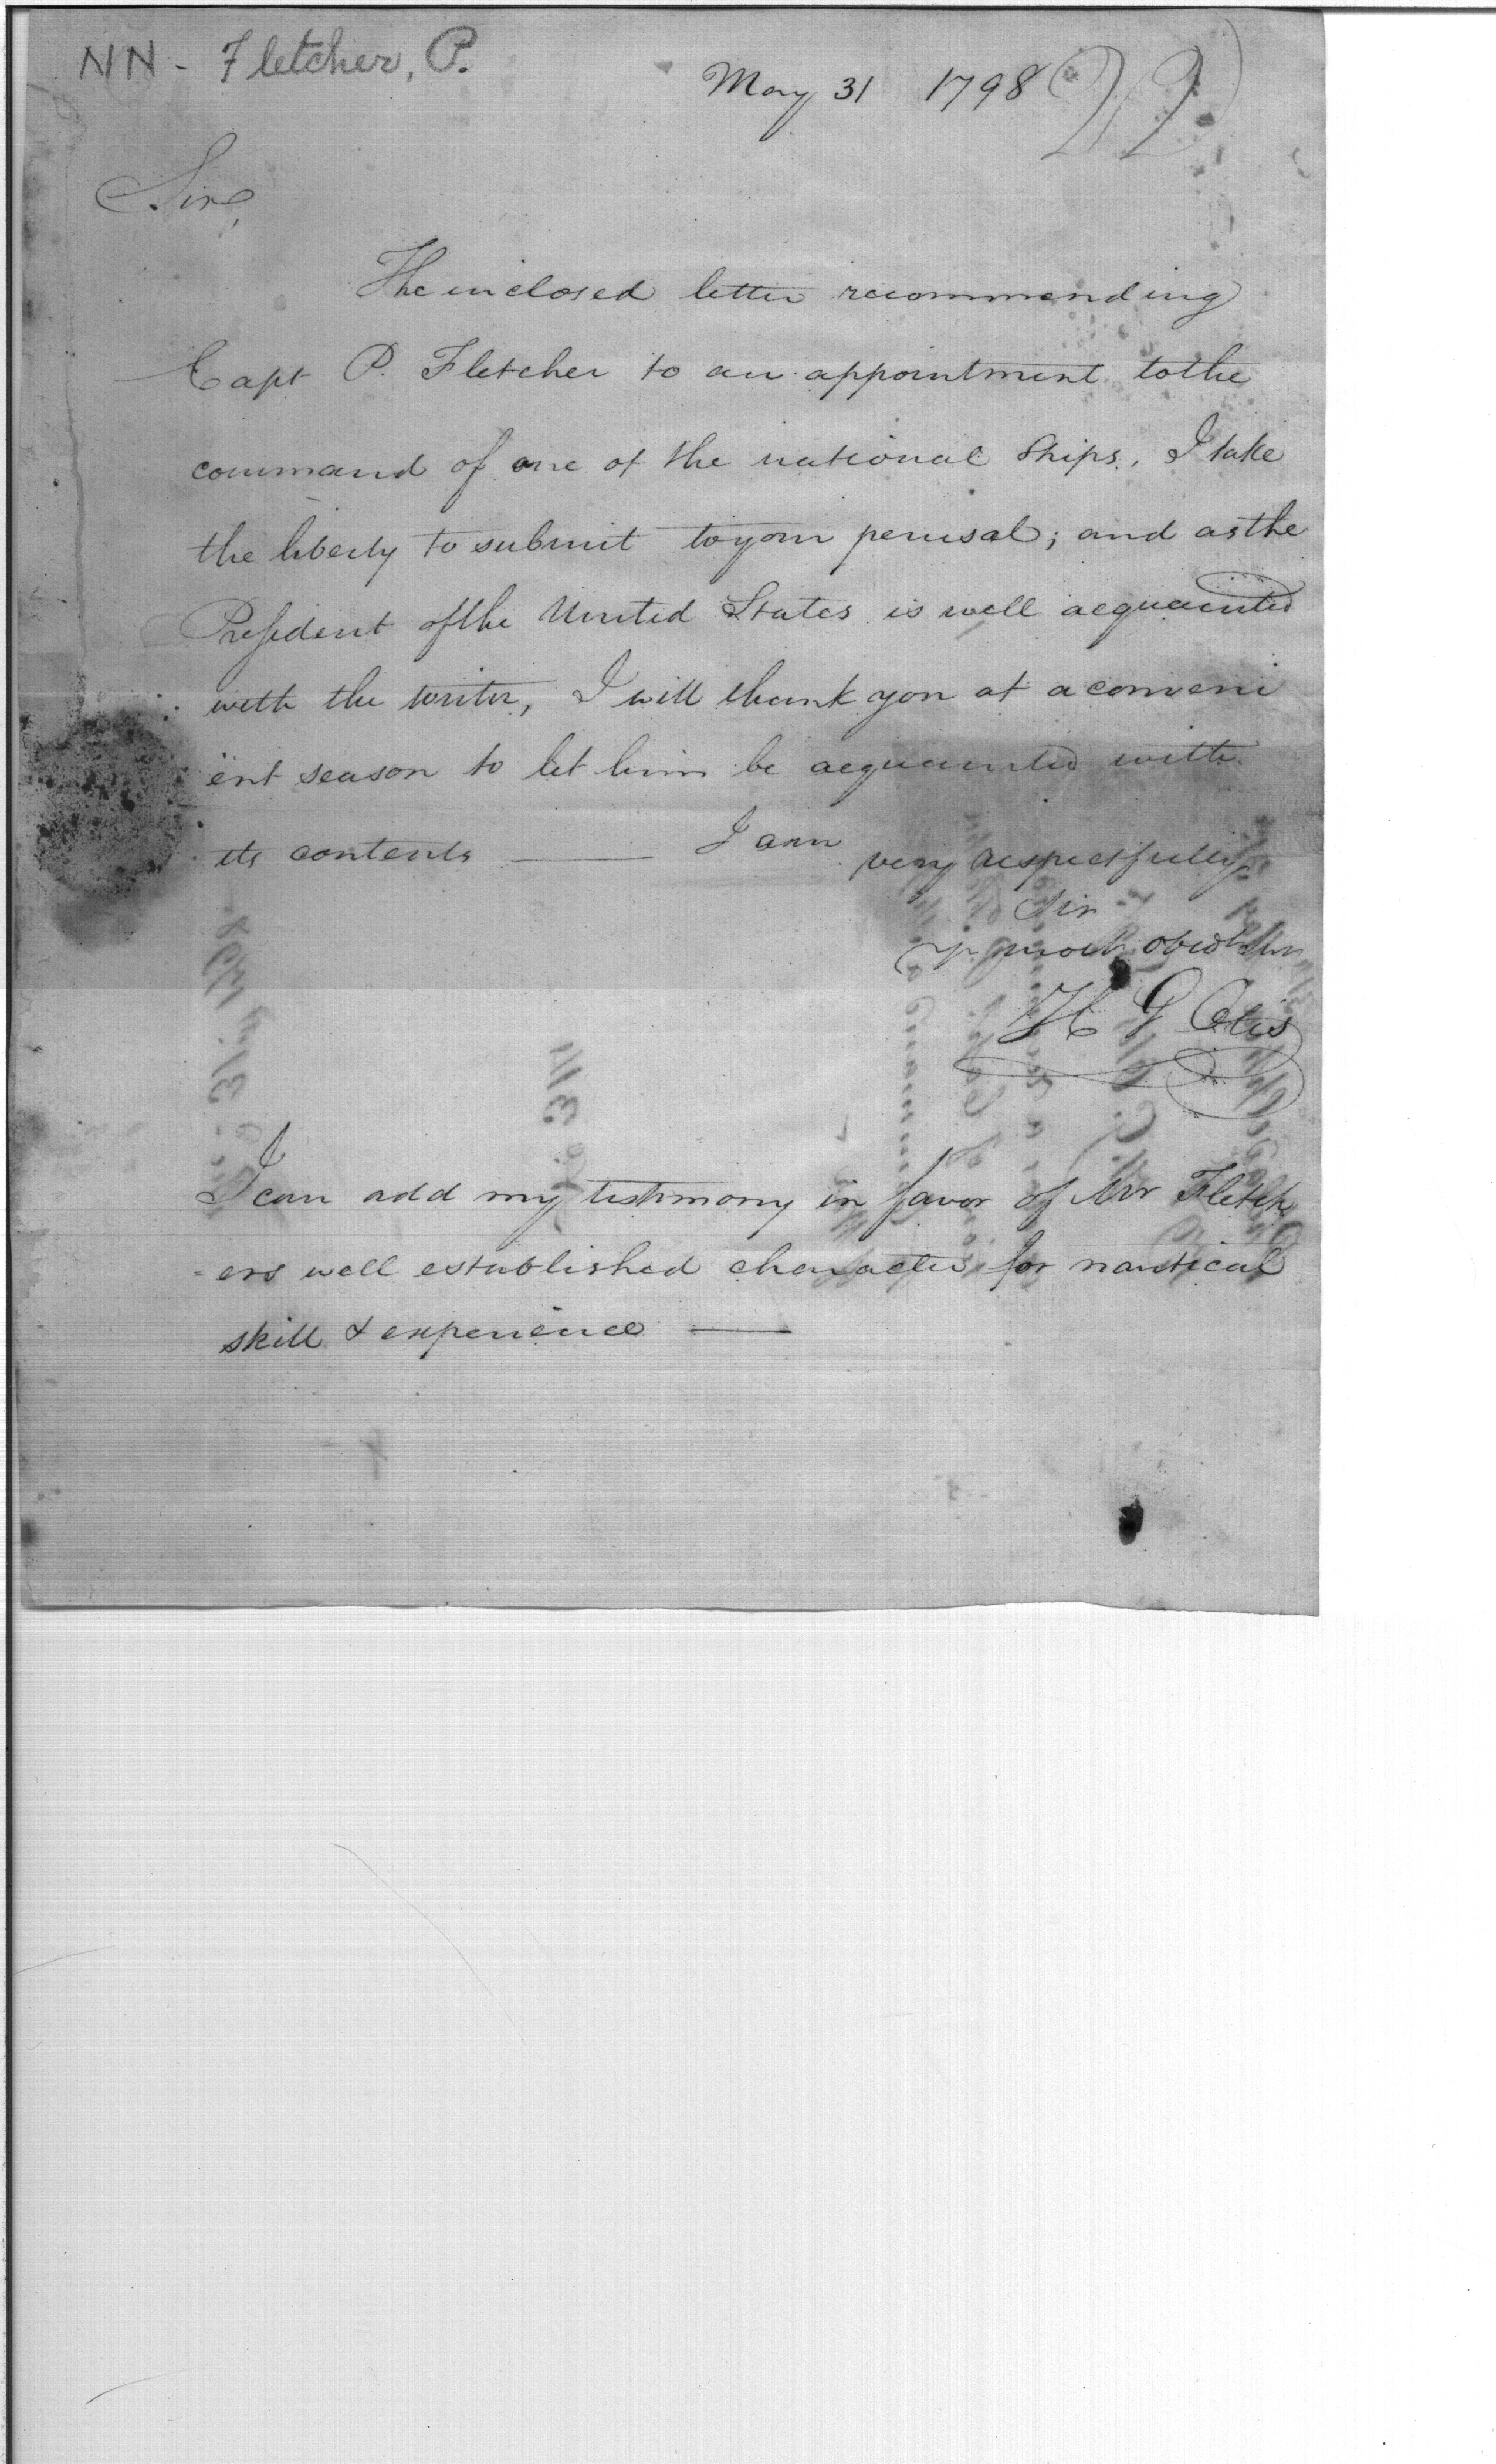 NN - Fletcher, P.
May 31 1798
Sir,
The inclosed letter recommending
Capt P. Fletcher to an appointment to the
command of one of the national Ships, I take
the liberty to submit to your perusal; and as the
President of the United States is well acquainted
with the writer, I will thank you at a conveni
ent season to let him be acquainted with
its contents —— I am
very respectfully
Sir
yr most obedt Ser
H G Otis
I can add my testimony in favor of Mr Fletch
=ers well established character for nautical
skill & experience ——